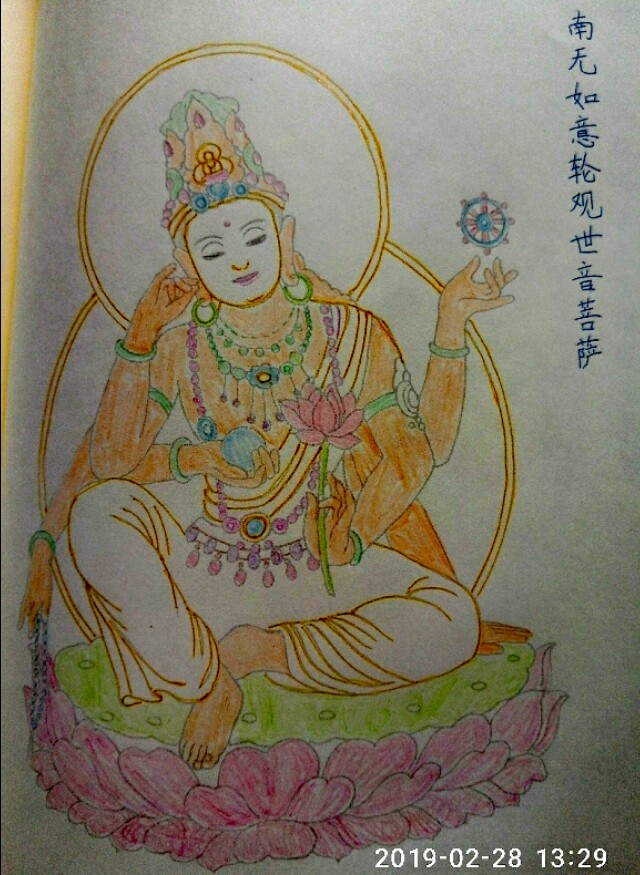 南无如意轮观世音菩萨
2019-02-28 13:29